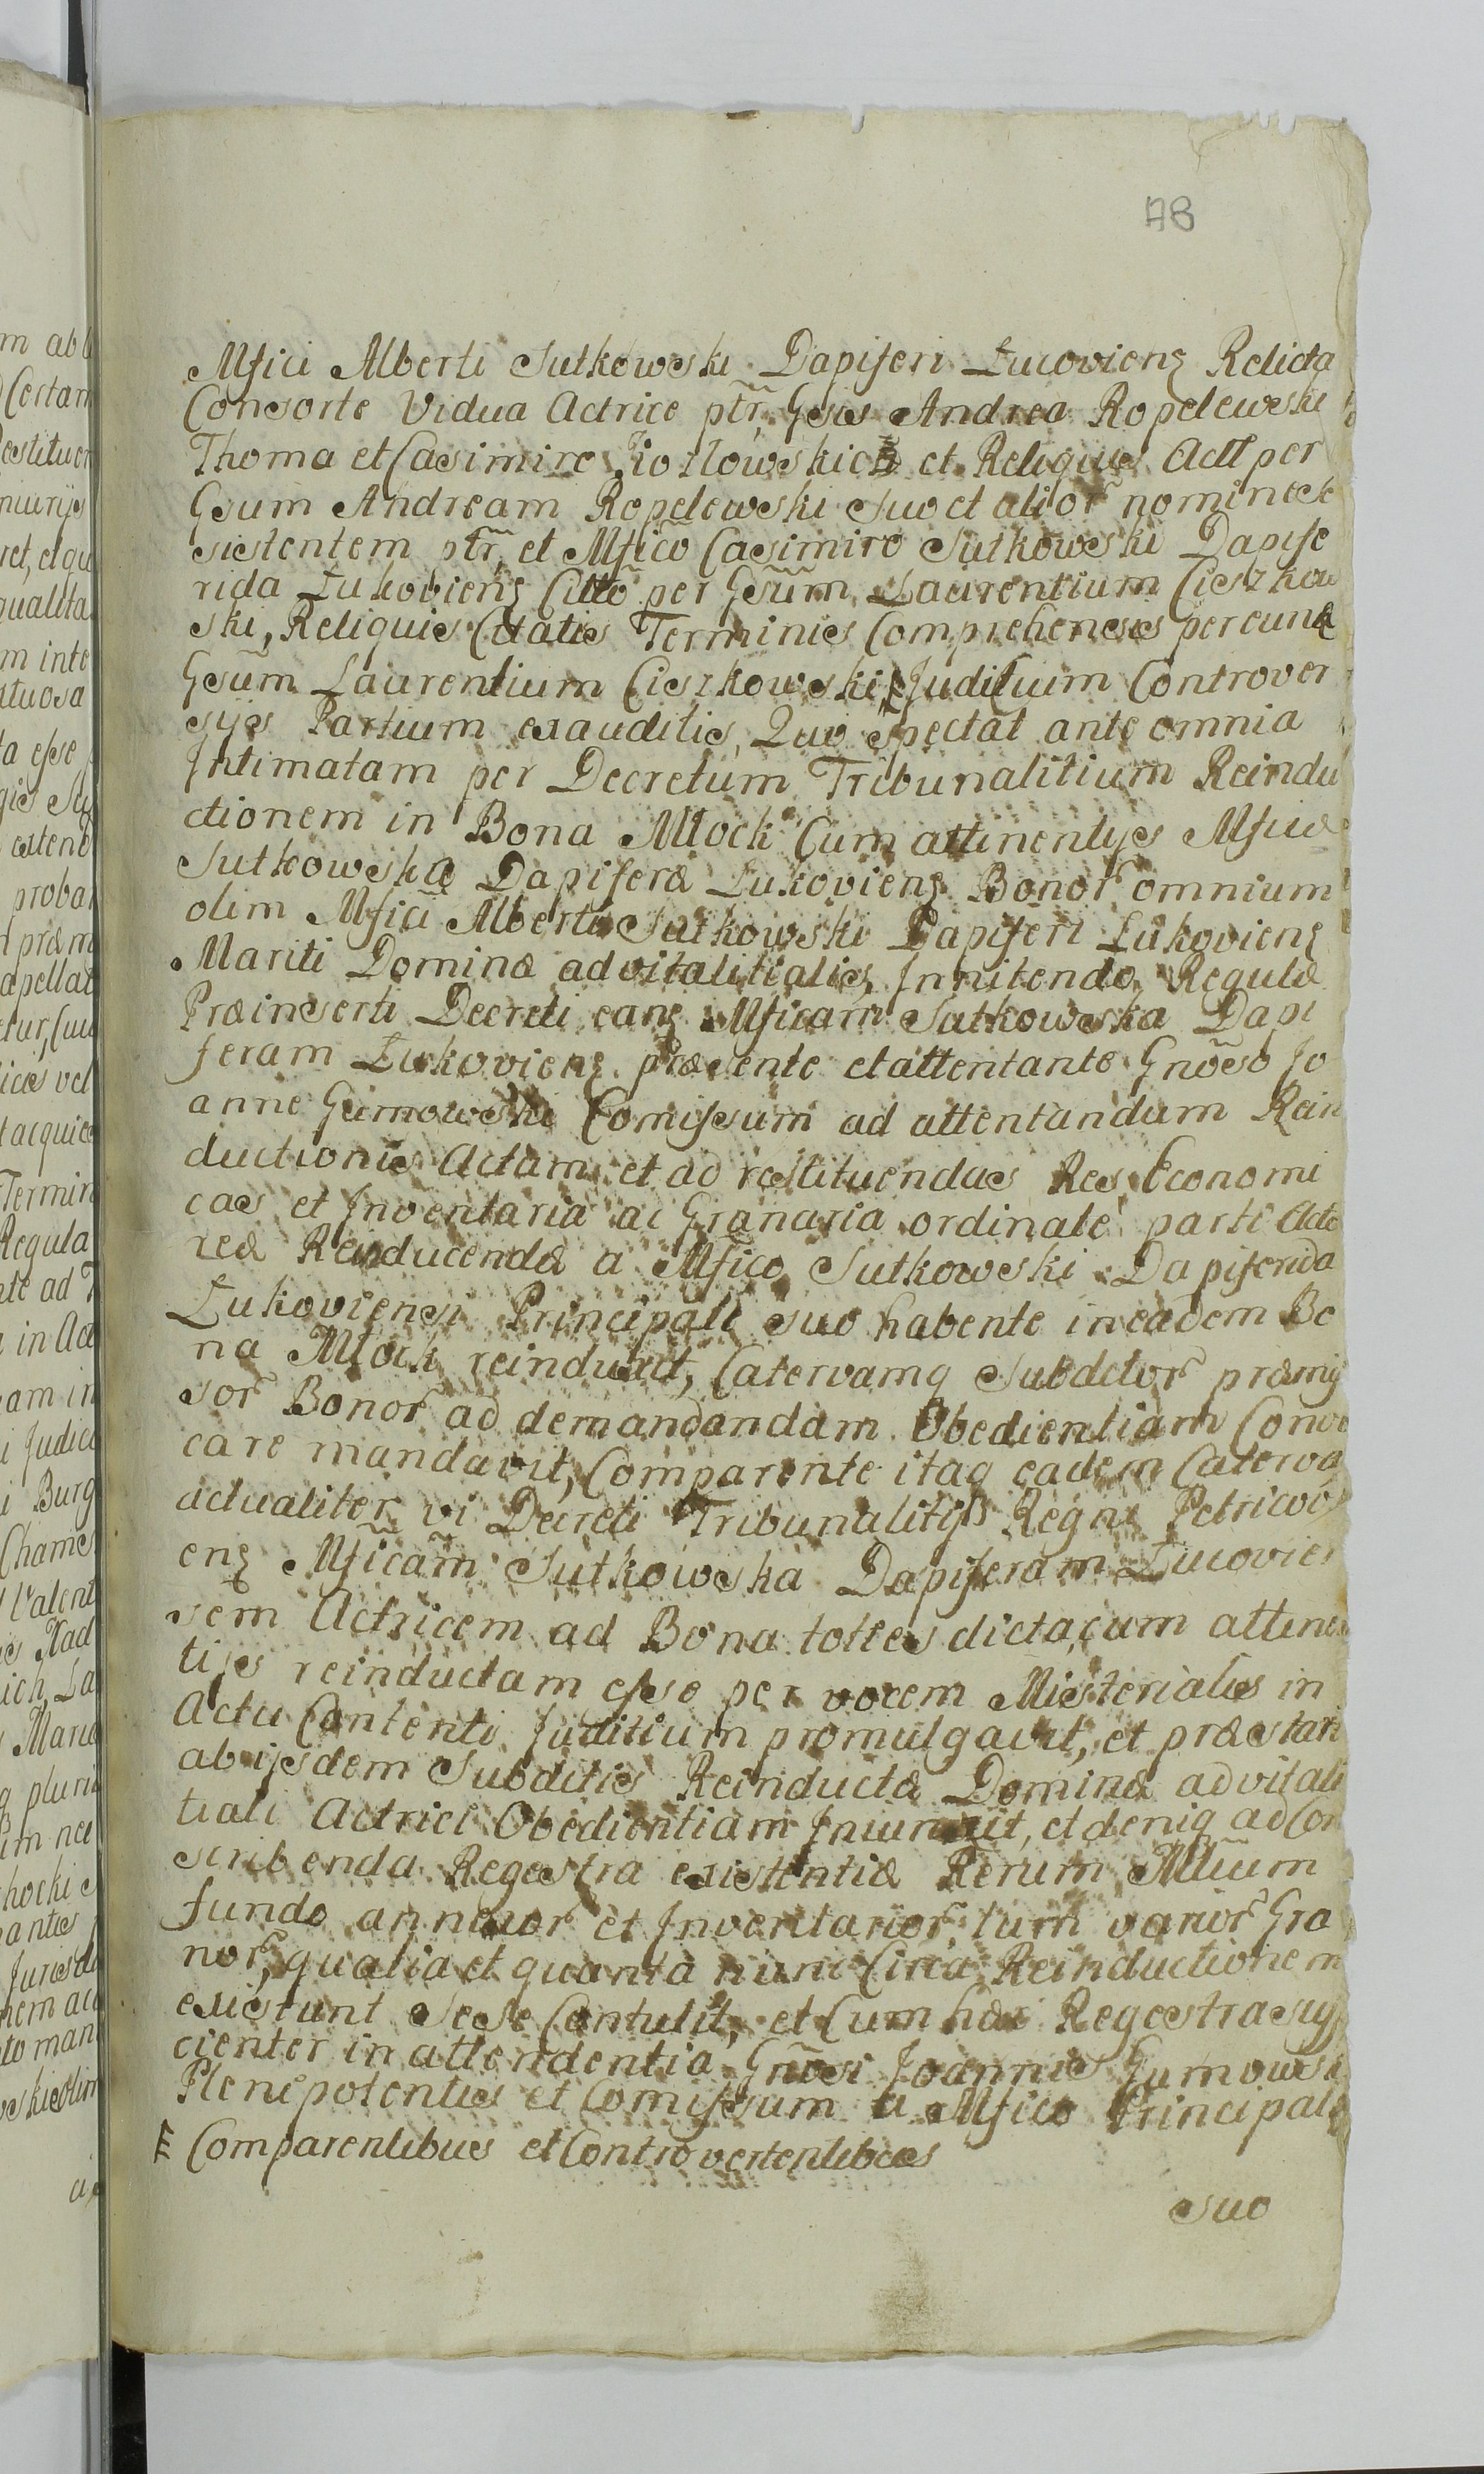 78
Mfici Alberti Sutkowski Dapiferi Łucoviens Relicta
Consorte Vidua Actrice ptr, Gsis Andrea Ropelewski
Thoma et Casimiro Kozłowskich et Reliquis Actt per
Gsum Andream Ropelewski suo et alior nomine se
sistentem ptr, et Mfico Casimiro Sutkowski Dapife
rida Łukoviens Citto per Gsum Laurentium Cieszkow
ski, Reliquis Citatis Terminis Comprehensis per eund
Gsum Laurentium Cieszkowski, Judicium Controver
sijs Partium exauditis, Quo spectat ante omnia
Intimatam per Decretum Tribunalitium Reindu
ctionem in Bona Młock Cum attinentijs Mficæ
Sutkowska Dapiferæ Łukoviens Bonor omnium
olim Mfici Alberti Sutkowski Dapiferi Łukoviens
Mariti Dominæ advitalitialis, Innitendo, Regulæ
Præinserti Decreti, eand Mficam Sutkowska Dapi
feram Łukoviens præsente et attentante Gnoso Jo
anne Gumowski Comissum ad attentandum Rein
ductionis Actum et ad restituendas Res Economi
cas et Inventaria ac Granaria ordinate parti Acto
reæ Reinducendæ a Mfico Sutkowski Dapiferida
Łukoviensi Principali suo habente in eadem Bo
na Młock reinduxit, Catervamq Subditor præmis
sor Bonor ad demandandam Obedientiam Convo
care mandavit, Comparente itaq eadem Caterva
actualiter vi Decreti Tribunalitij Regni Petricovi
ens Mficam Sutkowska Dapiferam Łucovien
sem Actricem ad Bona toties dicta cum attinen
tijs reinductam esse per vocem Misterialis in
Actu Contenti Juditium promulgavit, et præstari
ab ijsdem Subditis Reinductæ Dominæ advitali
tiali Actrici Obedientiam Iniunxit, et deniq ad Con
scribenda Regestra existentiæ Rerum Mlium
fundo annexor et Inventarior, tum varior Gra
nor, qualia et quanta nunc Circa Reinductionem
existunt sese Contulit, et Cum hæc Regestra suf
cienter in attendentia Gnosi Joannis Gumowski
Plenipotentis et Comissum a Mfico Principali
Comparentibus et Controvertentibus
suo